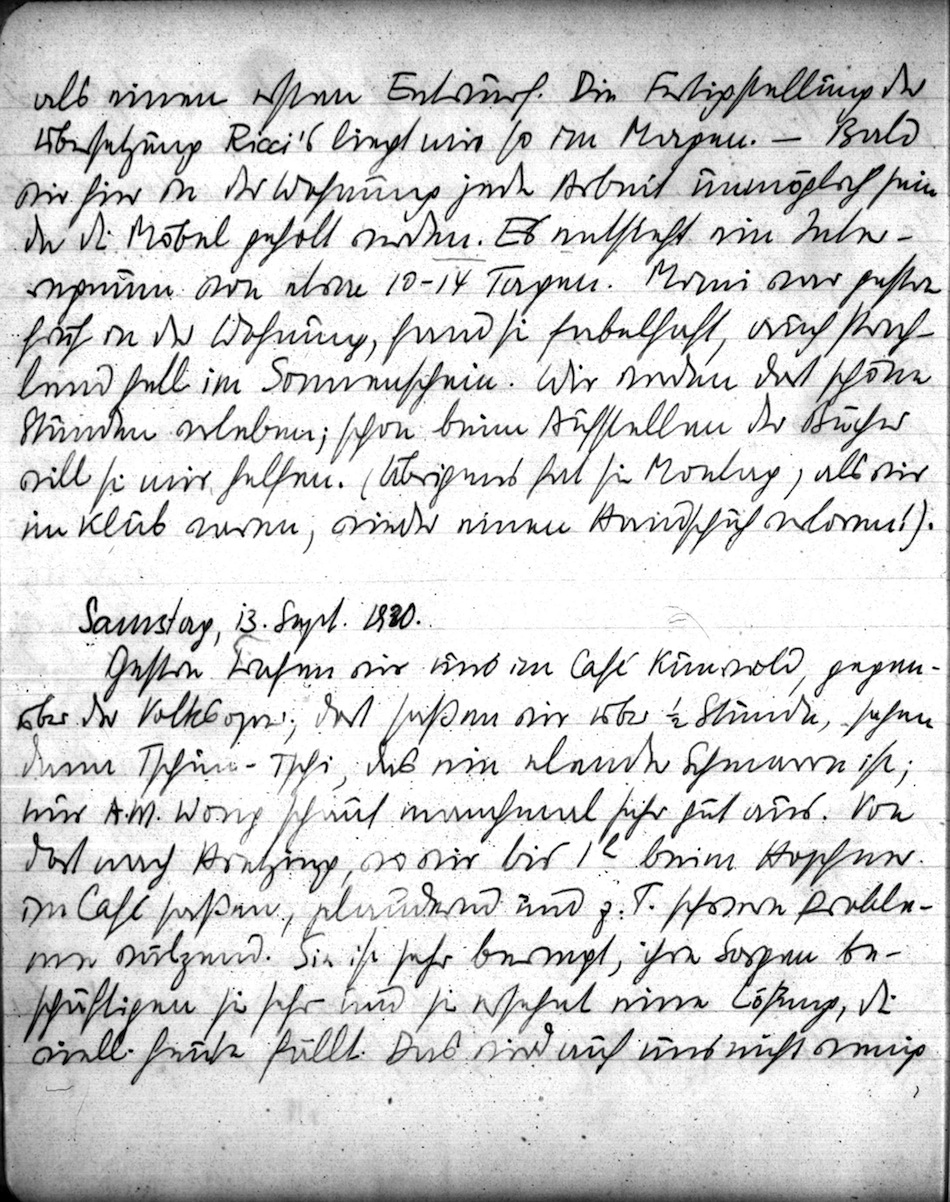 als einen ersten Entwurf. Die Fertigstellung der
Übersetzung Ricci's liegt mir so im Magen. – Bald
wir hier in der Wohnung jede Arbeit unmöglich sein
da die Möbel geholt werden. Es entsteht ein Inter-
regnum von etwa 10-14 Tagen. Mimi war gestern
früh in der Wohnung, fand sie fabelhaft, auch strah-
lend hell im Sonnenschein. Wir werden dort schöne
Stunden erleben; schon beim Aufstellen der Bücher
will sie mir helfen. (Übrigens hat sie Montag, als wir
im Klub waren, wieder einen Handschuh verloren!).
Samstag, 13. Sept. 1930.
Gestern trafen wir uns im Café Kunwald, gegen-
über der Volksoper; dort saßen wir über ½ Stunde, sahen
dann Tschun-Tschi, das ein elender Schmarrn ist;
nur A.M. Wong schaut manchmal sehr gut aus. Von
dort nach Hietzing, wo wir bis 1h beim Hopfner
im Café saßen, plaudernd und z. T. schwere Proble-
me wälzend. Sie ist sehr bewegt, ihre Sorgen be-
schäftigen sie sehr und sie ersehnt eine Lösung, die
viell. heute fällt. Das wird auch uns nicht wenig